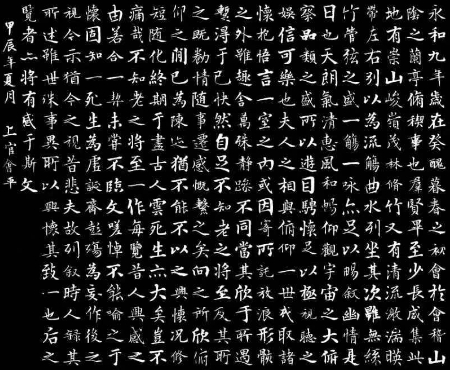 永和九年歲在癸醜暮春之初會於會稽山
陰之蘭亭脩稧事也群賢畢至少長咸集此
地有崇山峻嶺茂林脩竹又有清流激湍暎
帶左右引以為流觴曲水列坐其次雖無絲
竹管弦之盛一觴一詠亦足以暢敘幽情是
日也天朗氣清惠風和暢仰觀宇宙之大俯
察品類之盛所以遊目騁懷足以極視聽之
娛信可樂也夫人之相與俯仰一世或取諸
懷抱悟言一室之內或因寄所託放浪形骸
之外雖趣舍萬殊靜躁不同當其欣於所遇
暫得於己快然自足不知老之將至及其所
之既勌情隨事遷感慨繫之矣向之所欣俯
仰之間已為陳迹猶不能不以之興懷況脩
短隨化終期於盡古人云死生亦大矣豈不
痛哉不知老之將至一作每覽昔人興感之
由若合一契未嘗不臨文嗟悼不能喻之于
懷固知一死生為虛誕齊彭殤為妄作後之
視今亦猶今之視昔悲夫故列敘時人錄其
所述雖世殊事異所以興懷其致一也後之
覽者亦將有感于斯文
甲辰年夏月 上官會平